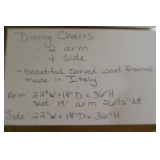 Dining Chairs
- 2 arm
- 4 side
- beautiful carved wood frames
made in Italy
Arm: 22"W x 18"D x 36"H
seat 19" arm 26 1/2" ht
Side: 22"W x 18"D x 36"H